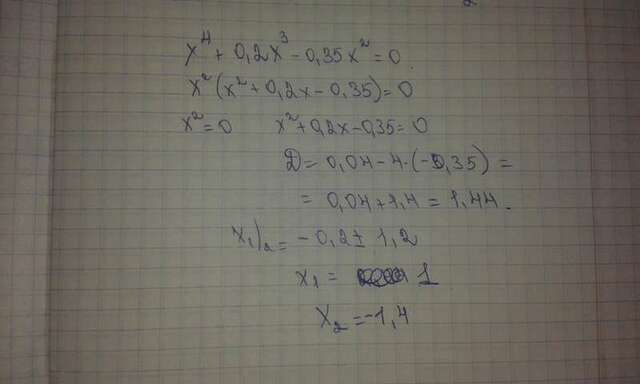 x⁴ + 0,2x³ - 0,35x² = 0.
x²(x² + 0,2x - 0,35) = 0
x² = 0 x² + 0,2x - 0,35 = 0
D = 0,04 - 4·(-0,35) =
= 0,04 + 1,4 = 1,44.
x₁/₂ = -0,2 ± 1,2
x₁ = 1
x₂ = -1,4